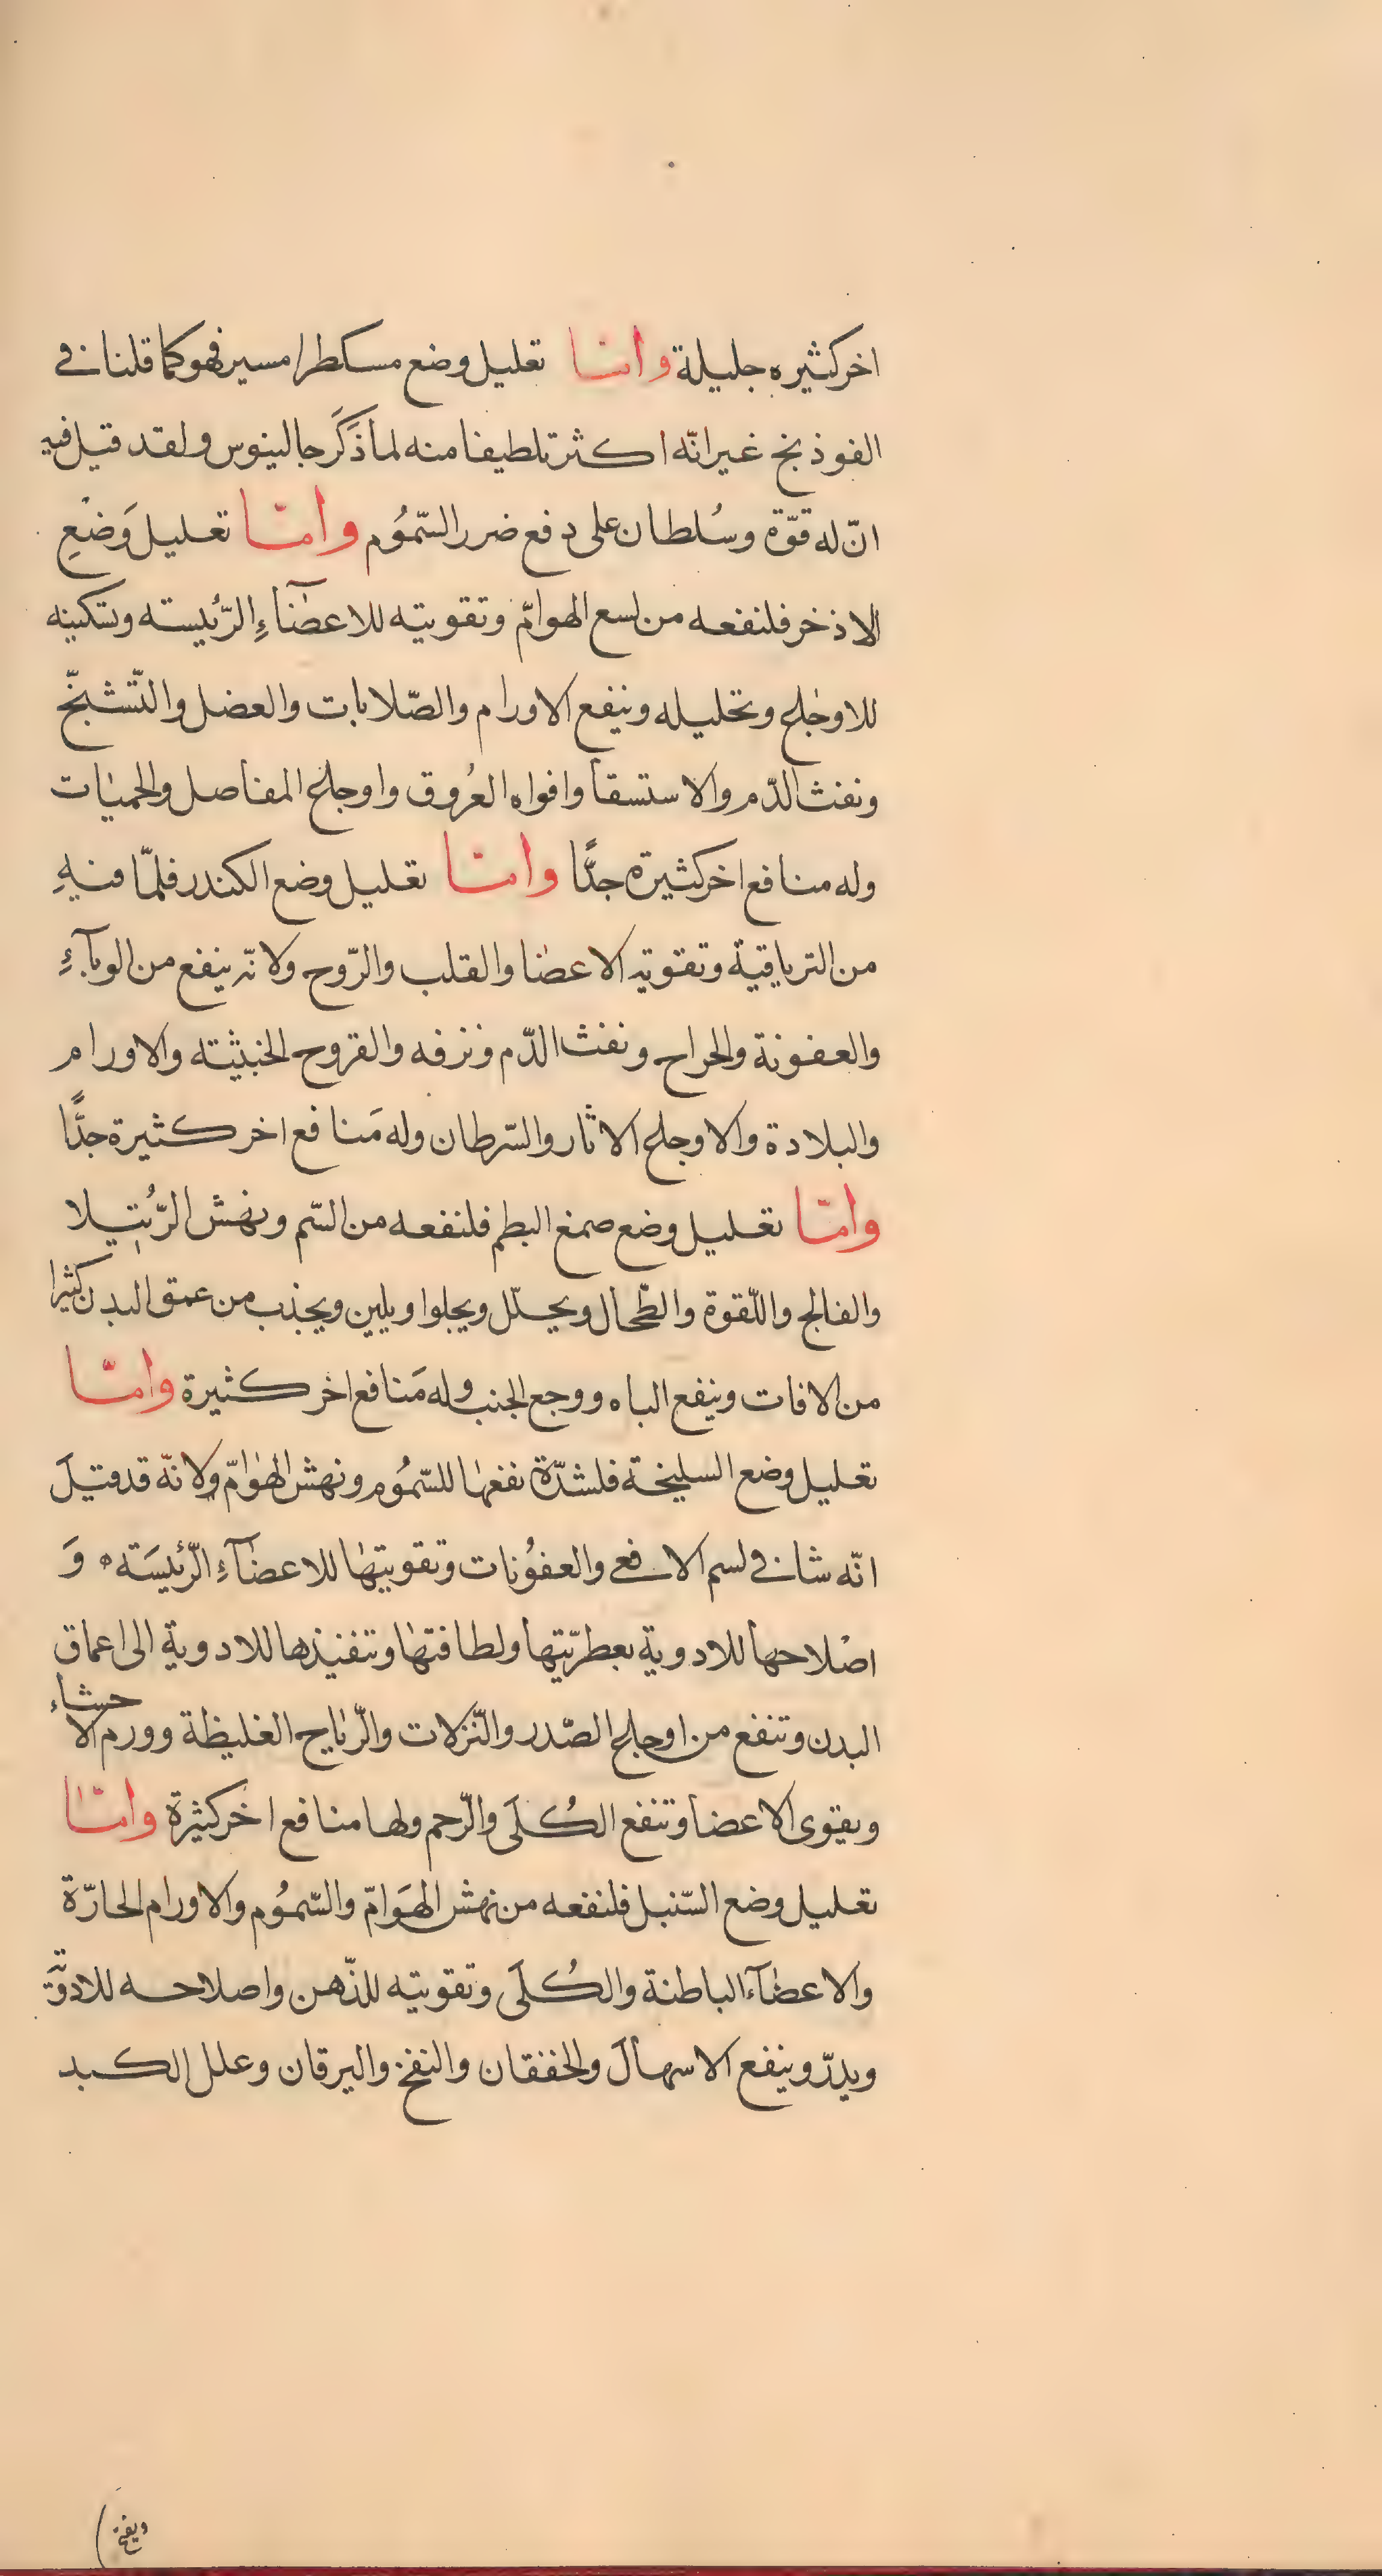 اخر كثيره جليلة وامّا تعليل وضع مسكطرامسير فهو كما قلنا فى
الفوذنج غير انّه اكثر تلطيفا منه لما ذَكَرَ جالينوس ولقد قيل فيه
انّ له قوّة وسُلطان على دفع ضرر السّمُوم وامّا تعليل وَضْعِ
الاذخر فلنفعه من لسع الهوامّ وتقويته للاعضآءِ الرّئيسته وتسكينه
للاوجاع وتحليله وينفع الاورام والصّلابات والعضل والتّشنّج
ونفث الدّم والاستسقا وافواه العُروق واوجاع المفاصل والحميات
وله منافع اخر كثيرة جدًّا وامّا تعليل وضع الكندر فلمّا فيهِ
من الترياقية وتقويته الاعضا والقلب والرّوح ولانّه ينفع من الوبآءِ
والعفونة والجراح ونفث الدّم ونزفه والقروح الخبيثته والاورام
والبلادة والاوجاع الاثار والسّرطان وله مَنافع اخر كثيرة جدًّا
وامّا تعليل وضع صمغ البطم فلنفعه من السّم ونهش الرُّتيلا
والفالج واللّقوة والطّحال ويحلّل ويجلوا ويلين ويجذب من عمق البدن كثيرا
من الافات وينفع الباه ووجع الجنب وله مَنافع اخر كثيرة وامّا
تعليل وضع السليخة فلشدّة نفعها للسّمُوم ونهش الهوامّ ولانّه قد قيلَ
انّه شان فى لسم الافعى والعفوُنات وتقويتها للاعضآءِ الرّئيسَته وَ
اصْلاحها للادوية بعطريّتها ولطافتها وتنفيذها للادوية الى اعماق
البدن وتنفع من اوجاع الصّدر والنّزلات والرّياح الغليظة وورم الاحشاء
ويقوى الاعضا وتنفع الكُلَى والرّحم ولها منافع اخر كثيرة وامّا
تعليل وضع السّنبل فلنفعه من نهش الهَوَامّ والسّمُوم والاورام الحارّة
والاعضآء الباطنة والكُلَى وتقويته للذّهن واصلاحه للادويّة
ويدرّ وينفع الاسهال والخفقان والنفخ واليرقان وعلل الكبد